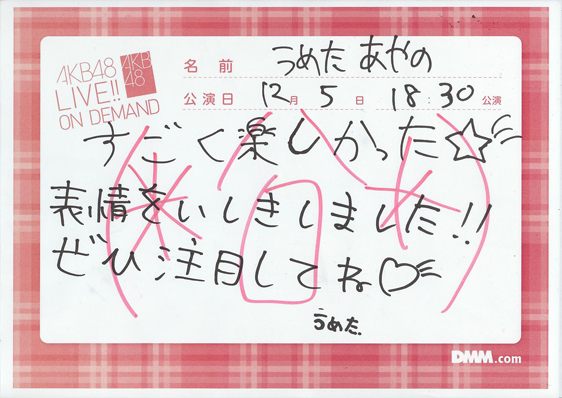 AKB48
LIVE!!
ON DEMAND
AKB
48
名前 うめた あやの
公演日 12月 5日 18:30 公演
すごく楽しかった☆
表情をいしきしました!!
ぜひ注目してね♡
うめた.
DMM.com